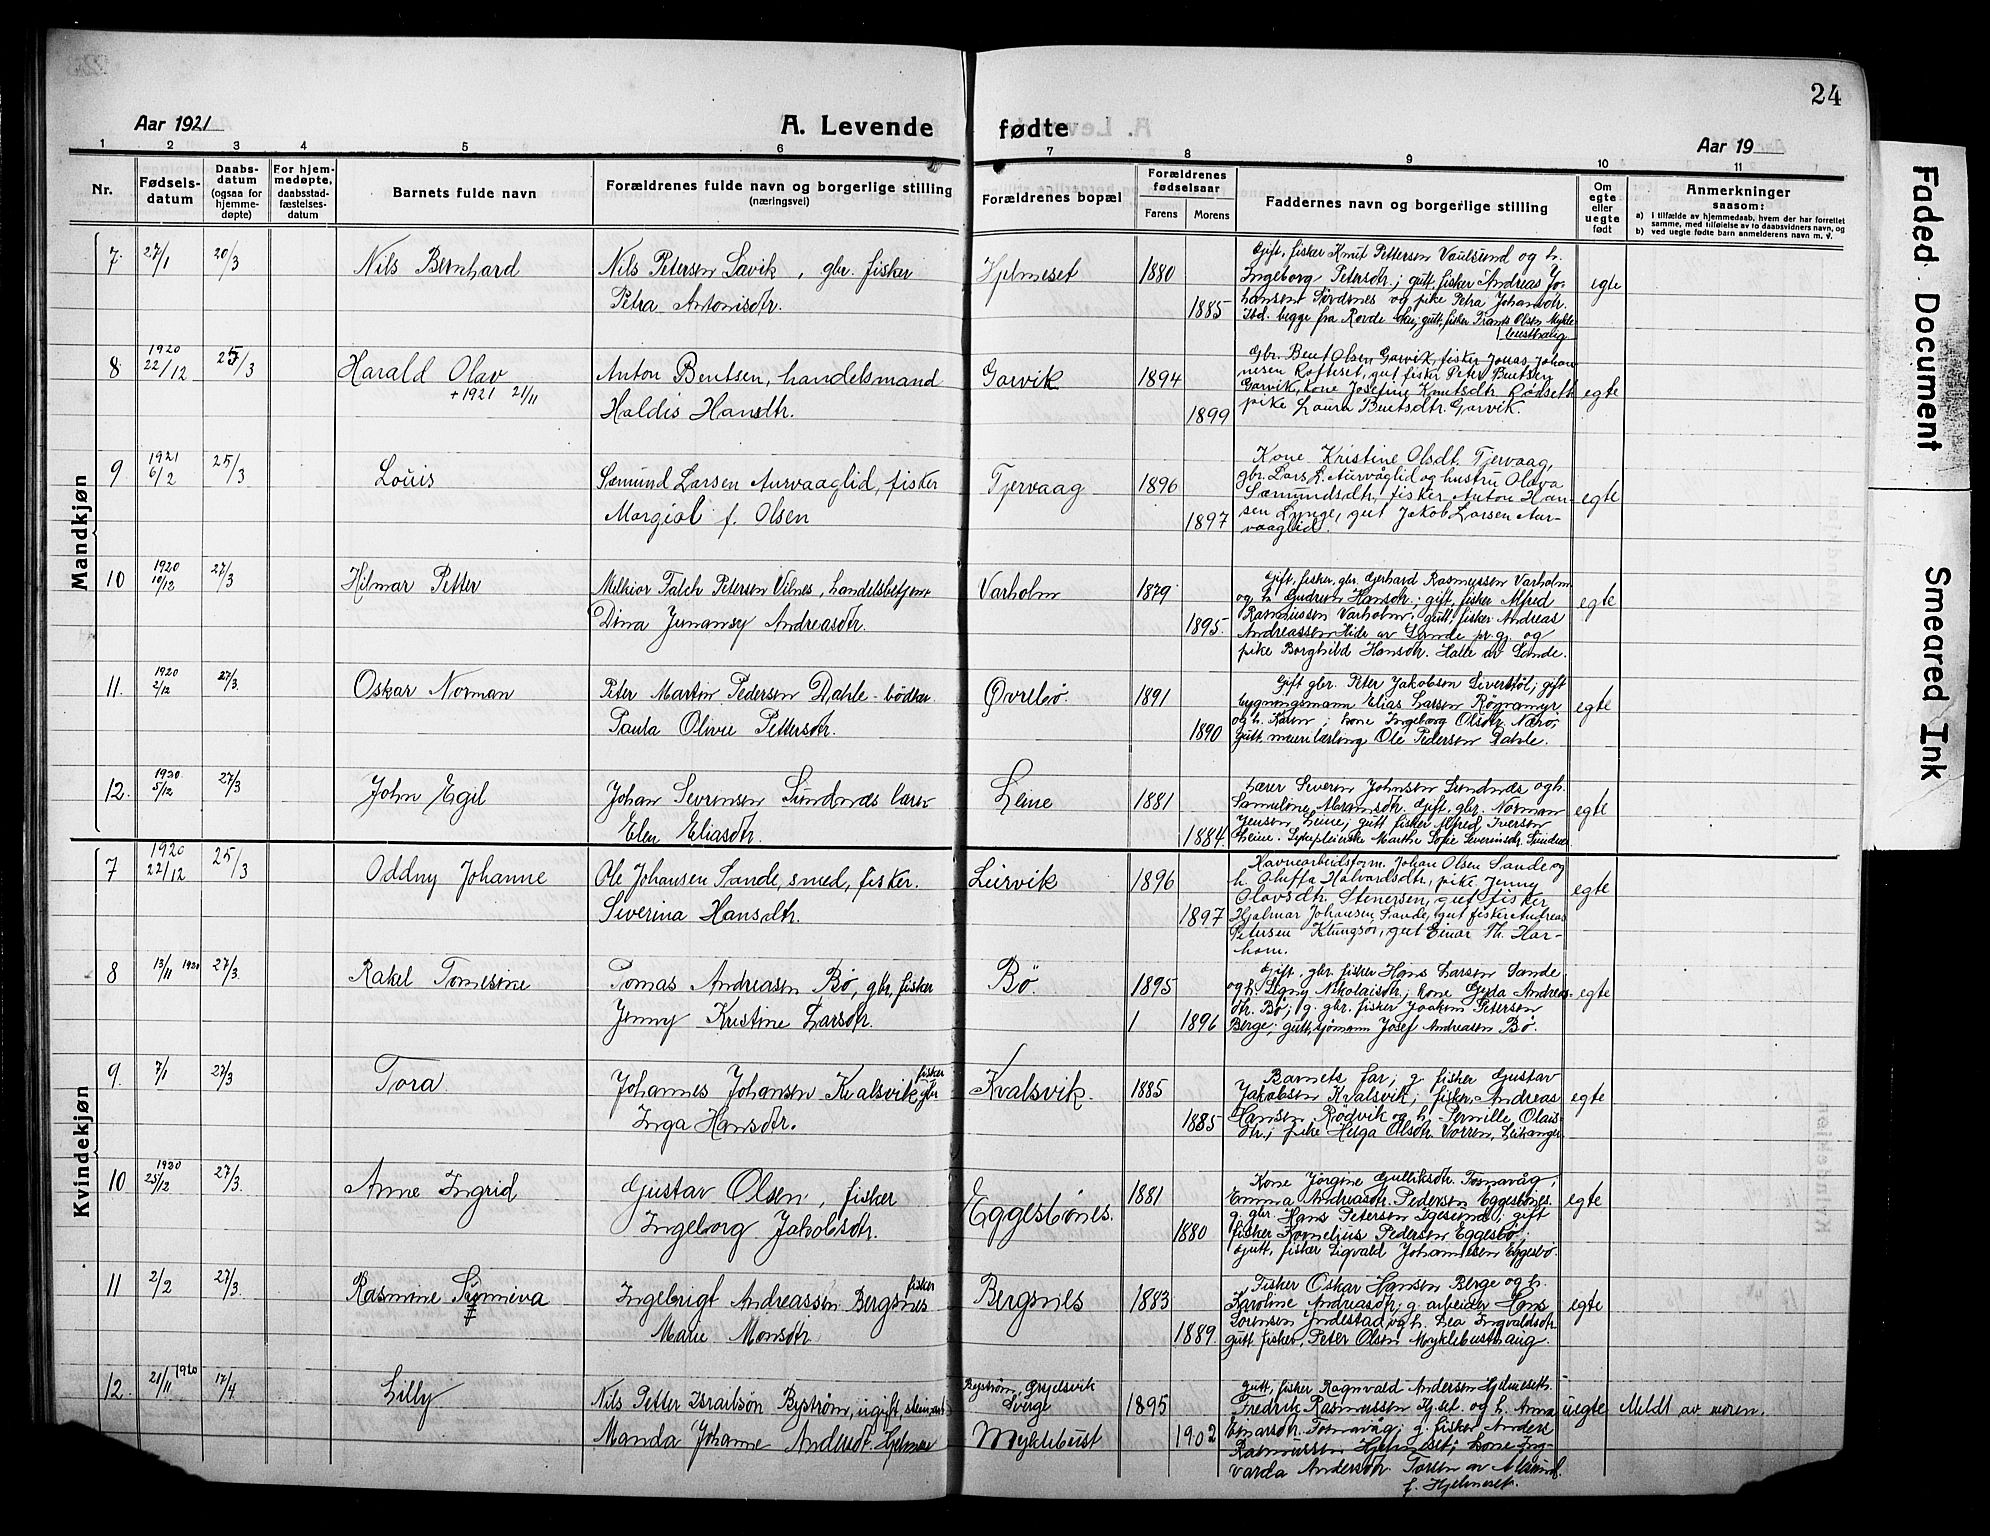 24
Aar 1921
A. Levende
fødte
Aar 19
1 2 3 4 5 6 7 8 9 10 11
Nr.
Fødsels-
datum
Daabs-
datum
(ogsaa for
hjemme-
døpte)
For hjem-
medøpte,
daabsstad-
fæstelses-
datum
Barnets fulde navn
Forældrenes fulde navn og borgerlige stilling
(næringsvei)
Forældrenes bopæl
Forældrenes
fødselsaar
Farens Morens
Faddernes navn og borgerlige stilling
Om
egte
eller
uegte
født
Anmerkninger
saasom:
a) I tilfælde av hjemmedaab, hvem der har forrettet
samme, med tilføielse av to daabsvidners navn, og
b) ved uegte fødte barn anmelderens navn m. v.
Mandkjøn
7. 27/1 20/3 Nils Bernhard
Nils Petersen Savik, gbr. fisker
Petra Antonisdtr.
Hjelmeset 1880
1885
Gift, fisker Knut Pettersen Vaulsund og h.
Ingeborg Petersdtr.; gutt, fisker Andreas Jo-
hansen Sørdsnes og pike Petra Johansdtr.
Ibd. begge fra Rovde gutt, fisker Frants Olsen Mykle
busthaug
egte
8 1920
22/12 25/3 Harald Olav
+ 1921 21/11
Anton Bentsen, handelsmand
Haldis Hansdtr.
Gorvik 1894
1899
Gbr. Bent Olsen Gorvik, fisker Jonas Johan
nesen Rofteset, gut fisker Peter Bentsen
Gorvik, kone Josefine Knutsdtr Rødseth
pike Laura Bentsdtr. Gorvik.
egte
9 1921
6/2 25/3 Louis
Sæmund Larsen Aurvaaglid, fisker
Margial f. Olsen
Tjervaag 1896
1897
Kone Kristine Olsdt. Tjervaag,
gbr. Lars L. Aurvåglid og hustru Olava
Sæmundsdtr, fisker Anton Han-
sen Lynge, gut Jakob Larsen Aur-
vaaglid.
egte
10 1920
10/12 27/3 Hilmar Petter
Melkior Falch Petersen Vilnes, handelsbetjent
Dina Jenansy Andreasdtr.
Varholm 1879
1895.
Gift, fisker, gbr. Gerhard Rasmussen Varholm
og h. Gudrun Hansdtr.; gift, fisker Alfred
Rasmussen Varholm; gutt, fisker Andreas
Andreassen Hide av Sande pr.gj. og
pike Borghild Hansdtr. Halle av Sande.
egte
11. 1920
2/12 27/3. Oskar Norman
Peter Martin Pedersen Dahle - bødker
Paula Olivie Pettersdtr.
Øvrebø 1891
1890
Gift gbr. Peter Jakobsen Siverstøl; gift
bygningsmann Elias Larsen Røgnamyr
og h. Karen; kone Ingeborg Olsdtr. Nærø;
gutt, murerlærling Ole Pedersen Dahle.
egte
12. 1920
5/12 27/3 John Egil
Johan Severensen Sundnæs lærer
Elen Eliasdtr.
Leine 1881
1884.
Lærer Severen Johnsen Sundnæs og h.
Sameline Abramsdtr. Gift, gbr. Norman
Jensen Leine; gutt fisker Alfred Iversen
Leine. Sykepleierske Marthe Sofie Severinsdtr. Sundnæs
egte
Kvindekjøn
7 1920
22/12 25/3 Oddny Johanne
Ole Johansen Sande, smed, fisker.
Severina Hansdtr.
Leirvik 1896
1897
Havnearbeidsform. Johan Olsen Sande og
h. Oluffa Halvardsdtr, pike Jenny
Olavsdtr. Stenersen, gut fisker
Hjalmar Johansen Sande, gut fisker Andreas
Petersen Klungsør, gut Einar Th. Har-
ham.
egte
8 13/11 1920 27/3. Rakel Tomesine
Tomas Andreasen Bø, gbr, fisker
Jenny Kristine Larsdtr.
Bø. 1895
1 1896
Gift, gbr. fisker Hans Larsen Sande
og h. Signy Nikolaisdtr.; kone Gyda Andreas-
dtr. Bø; g. gbr. fisker Joakim Petersen
Berge; gutt, sjømann Josef Andreasen Bø.
egte
9. 7/1 27/3 Tora.
Johannes Johansen Kvalsvik fisker
gbr
Inga Hansdtr.
Kvalsvik. 1885
1885
Barnets far; g. fisker Gustav
Jakobsen Kvalsvik; fisker, Andreas
Hansen Rødvik og h. Pernille Olais
dtr.; pike Helga Olsdtr. Vorren, Leikanger
egte
10 1920
25/12 27/3. Anne Ingrid
Gustav Olsen, fisker
Ingeborg Jakobsdtr.
Eggesbønes. 1881
1880
Kone Jørgine Gulliksdtr. Fosnavåg,
Emma Andreasdtr. Pedersen Eggesbønes.
g. gbr. Hans Petersen Igesund; gift
fisker Kornelius Pedersen Eggesbø;
Gutt, fisker Sigvald Johannesen Eggesbø.
egte
11 2/2 27/3. Rasmine Synneva
Ingebrigt Andreassen Bergsnes fisker
Marie Monsdtr.
Bergsnes 1883
1889.
Fisker Oskar Hansen Berge og h.
Karoline Andreasdtr; g. arbeider Hans
Sørensen Indestad og h. Lea Ingvaldsdtr
gutt fisker, Peter Olsen Myklebusthaug.
egte
12. 21/11 1920 17/4 Lilly
Nils Petter Israelsøn Bystrøm, ugift, stein.arb
Manda Johanne Andersdtr. Hjelmes
Bystrøm,
Sverge 1895
Myklebust 1902
Gutt, fisker Ragnvald Andersen Hjelmeseth.
Fredrik Rasmussen Hj.set. og h. Anna
Einarsdtr. Fosnavåg; g. fisker Anders
Rasmussen Hjelmeset; kone Ing-
varda Andersdtr. Torsen av Ålesund
f. Hjelmeset.
uegte Meldt av moren.
Faded Document
Smeared Ink